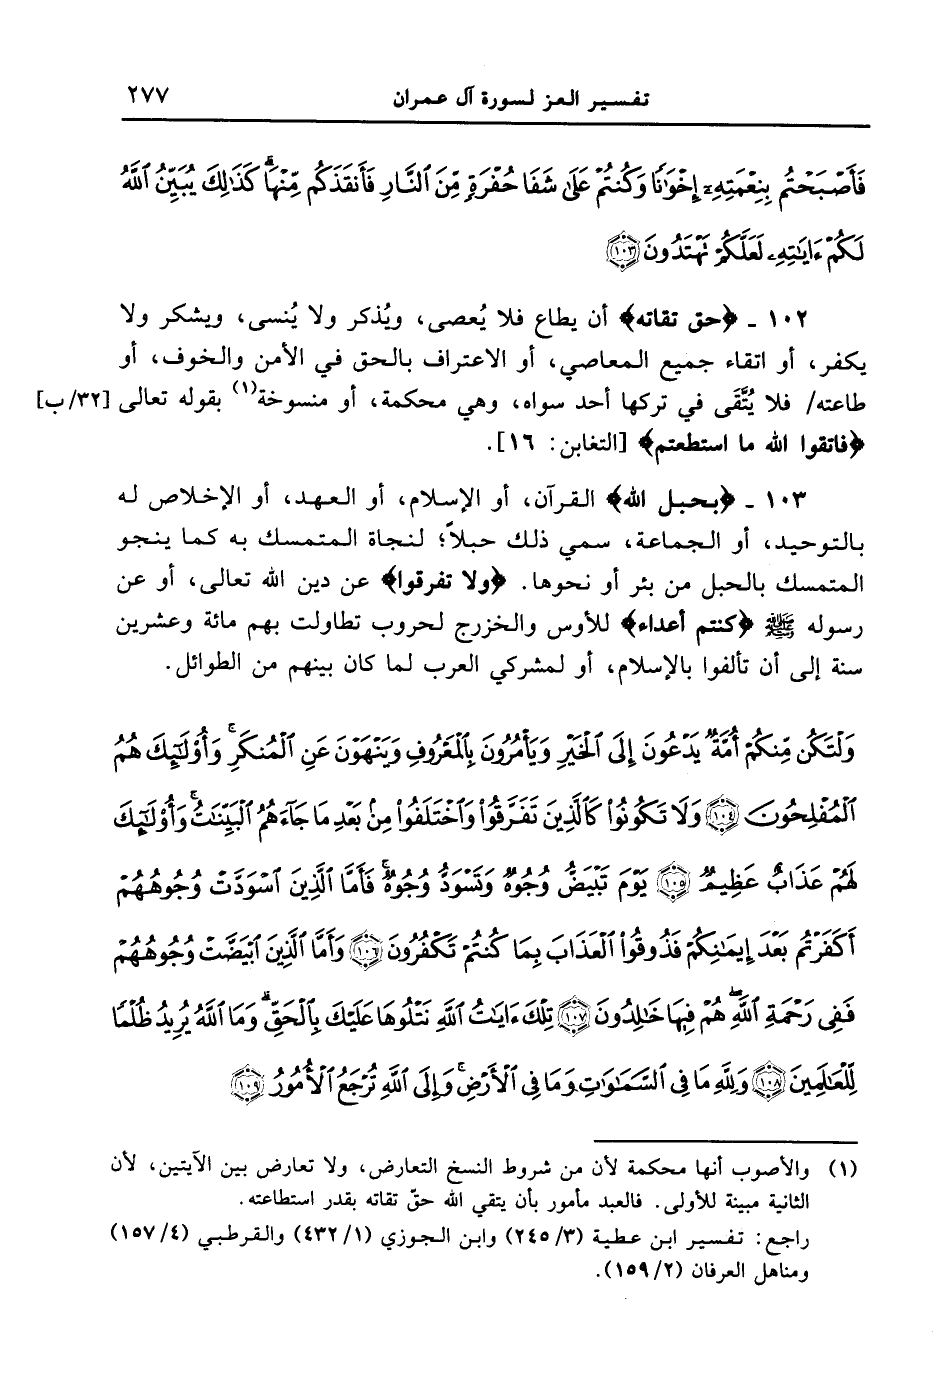 تفسير العز لسورة آل عمران ٢٧٧
فَأَصْبَحْتُم بِنِعْمَتِهِۦٓ إِخْوَٰنًا وَكُنتُمْ عَلَىٰ شَفَا حُفْرَةٍ مِّنَ ٱلنَّارِ فَأَنقَذَكُم مِّنْهَا ۗ كَذَٰلِكَ يُبَيِّنُ ٱللَّهُ
لَكُمْ ءَايَٰتِهِۦ لَعَلَّكُمْ تَهْتَدُونَ ﴿١٠٣﴾
١٠٢ ـ ﴿حق تقاته﴾ أن يطاع فلا يُعصى، ويُذكر ولا يُنسى، ويشكر ولا
يكفر، أو اتقاء جميع المعاصي، أو الاعتراف بالحق في الأمن والخوف، أو
طاعته/ فلا يُتَّقَى في تركها أحد سواه، وهي محكمة، أو منسوخة(١) بقوله تعالى [٣٢/ب]
﴿فاتقوا الله ما استطعتم﴾ [التغابن: ١٦].
١٠٣ ـ ﴿بحبل الله﴾ القرآن، أو الإسلام، أو العهد، أو الإخلاص له
بالتوحيد، أو الجماعة، سمي ذلك حبلاً؛ لنجاة المتمسك به كما ينجو
المتمسك بالحبل من بئر أو نحوها. ﴿ولا تفرقوا﴾ عن دين الله تعالى، أو عن
رسوله ﷺ ﴿كنتم أعداء﴾ للأوس والخزرج لحروب تطاولت بهم مائة وعشرين
سنة إلى أن تألفوا بالإسلام، أو لمشركي العرب لما كان بينهم من الطوائل.
وَلْتَكُن مِّنكُمْ أُمَّةٌ يَدْعُونَ إِلَى ٱلْخَيْرِ وَيَأْمُرُونَ بِٱلْمَعْرُوفِ وَيَنْهَوْنَ عَنِ ٱلْمُنكَرِ ۚ وَأُو۟لَٰٓئِكَ هُمُ
ٱلْمُفْلِحُونَ ﴿١٠٤﴾ وَلَا تَكُونُوا۟ كَٱلَّذِينَ تَفَرَّقُوا۟ وَٱخْتَلَفُوا۟ مِنۢ بَعْدِ مَا جَآءَهُمُ ٱلْبَيِّنَٰتُ ۚ وَأُو۟لَٰٓئِكَ
لَهُمْ عَذَابٌ عَظِيمٌ ﴿١٠٥﴾ يَوْمَ تَبْيَضُّ وُجُوهٌ وَتَسْوَدُّ وُجُوهٌ ۚ فَأَمَّا ٱلَّذِينَ ٱسْوَدَّتْ وُجُوهُهُمْ
أَكَفَرْتُم بَعْدَ إِيمَٰنِكُمْ فَذُوقُوا۟ ٱلْعَذَابَ بِمَا كُنتُمْ تَكْفُرُونَ ﴿١٠٦﴾ وَأَمَّا ٱلَّذِينَ ٱبْيَضَّتْ وُجُوهُهُمْ
فَفِى رَحْمَةِ ٱللَّهِ ۖ هُمْ فِيهَا خَٰلِدُونَ ﴿١٠٧﴾ تِلْكَ ءَايَٰتُ ٱللَّهِ نَتْلُوهَا عَلَيْكَ بِٱلْحَقِّ ۗ وَمَا ٱللَّهُ يُرِيدُ ظُلْمًا
لِّلْعَٰلَمِينَ ﴿١٠٨﴾ وَلِلَّهِ مَا فِى ٱلسَّمَٰوَٰتِ وَمَا فِى ٱلْأَرْضِ ۚ وَإِلَى ٱللَّهِ تُرْجَعُ ٱلْأُمُورُ ﴿١٠٩﴾
(١) والأصوب أنها محكمة لأن من شروط النسخ التعارض، ولا تعارض بين الآيتين، لأن
الثانية مبينة للأولى. فالعبد مأمور بأن يتقي الله حقّ تقاته بقدر استطاعته.
راجع: تفسير ابن عطية (٣/ ٢٤٥) وابن الجوزي (١/ ٤٣٢) والقرطبي (٤/ ١٥٧)
ومناهل العرفان (٢/ ١٥٩).